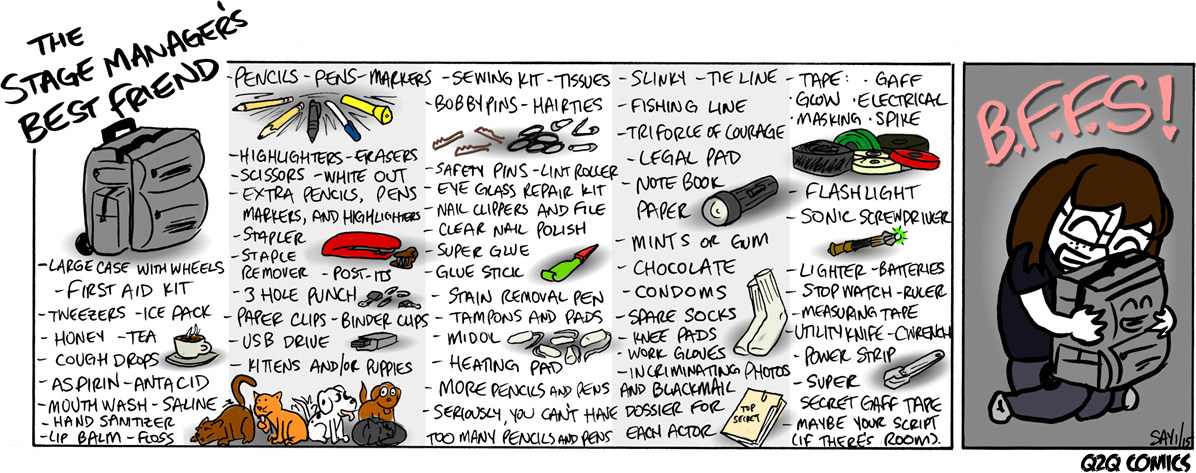 THE
STAGE MANAGER'S
BEST FRIEND
-LARGE CASE WITH WHEELS
-FIRST AID KIT
-TWEEZERS -ICE PACK
-HONEY -TEA
-COUGH DROPS
-ASPIRIN -ANTACID
-MOUTH WASH -SALINE
-HAND SANITIZER
-LIP BALM -FLOSS
-PENCILS -PENS -MARKERS
-HIGHLIGHTERS -ERASERS
-SCISSORS -WHITE OUT
-EXTRA PENCILS, PENS
MARKERS, AND HIGHLIGHTERS
-STAPLER
-STAPLE
REMOVER -POST-ITS
-3 HOLE PUNCH
-PAPER CLIPS -BINDER CLIPS
-USB DRIVE
-KITENS AND/OR PUPPIES
-SEWING KIT -TISSUES
-BOBBYPINS -HAIRTIES
-SAFETY PINS -LINT ROLLER
-EYE GLASS REPAIR KIT
-NAIL CLIPPERS AND FILE
-CLEAR NAIL POLISH
-SUPER GLUE
-GLUE STICK
-STAIN REMOVAL PEN
-TAMPONS AND PADS
-MIDOL
-HEATING PAD
-MORE PENCILS AND PENS
-SERIOUSLY, YOU CAN'T HAVE
TOO MANY PENCILS AND PENS
-SLINKY -TIE LINE
-FISHING LINE
-TRIFORCE OF COURAGE
-LEGAL PAD
-NOTE BOOK
PAPER
-MINTS OR GUM
-CHOCOLATE
-CONDOMS
-SPARE SOCKS
-KNEE PADS
-WORK GLOVES
-INCRIMINATING PHOTOS
AND BLACKMAIL
DOSSIER FOR
EACH ACTOR
TOP
SECRET
-TAPE: ·GAFF
·GLOW ·ELECTRICAL
·MASKING ·SPIKE
-FLASHLIGHT
-SONIC SCREWDRIVER
-LIGHTER -BATTERIES
-STOP WATCH -RULER
-MEASURING TAPE
-UTILITY KNIFE -C WRENCH
-POWER STRIP
-SUPER
SECRET GAFF TAPE
-MAYBE YOUR SCRIPT
(IF THERE'S ROOM).
B.F.F.S!
SAYI/15
Q2Q COMICS